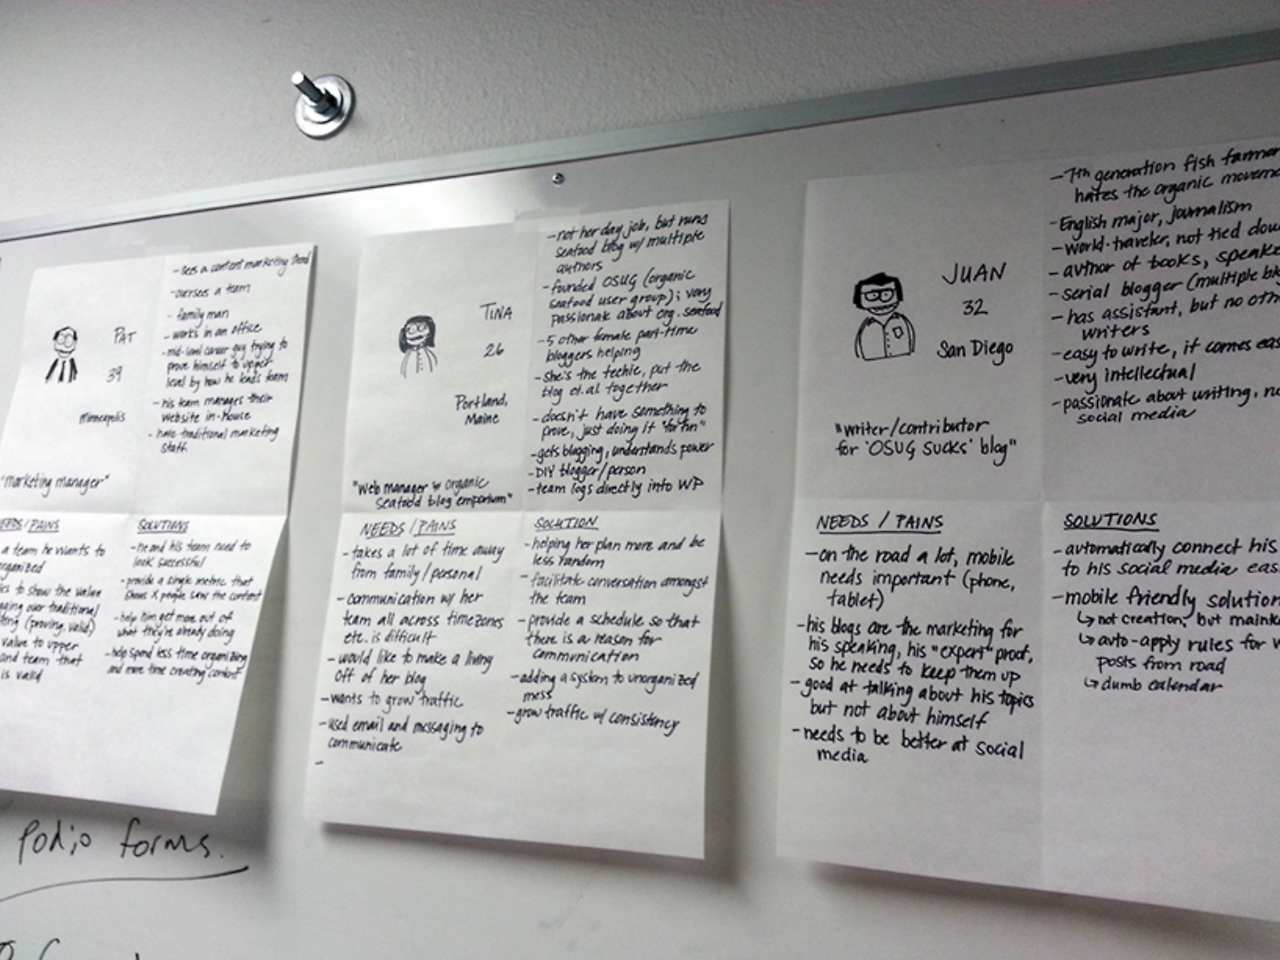 PAT
39
Minneapolis
"marketing manager"
- sees a content marketing
- oversees a team
- family man
- works in an office
- mid-level career guy trying to
prove himself to upper
level by how he leads team
- his team manages their
website in-house
- have traditional marketing
staff
NEEDS/PAINS
a team he wants to
organized
to show the value
over traditional
(proving, valid)
value to upper
and team that
is valid
SOLUTIONS
- he and his team need to
look successful
- provide a single metric that
shows X people saw the content
- help him get more out of
what they're already doing
- help spend less time organizing
and more time creating content
TINA
26
Portland,
Maine
"web manager organic
seafood blog emporium"
- not her day job, but runs
seafood blog w/ multiple
authors
- founded OSUG (organic
seafood user group); very
passionate about org. seafood
- 5 other female part-time
bloggers helping
- she's the techie, put the
blog et. al together
- doesn't have something to
prove, just doing it "for fun"
- gets blogging, understands power
- DIY blogger/person
- team logs directly into WP
NEEDS/PAINS
- takes a lot of time away
from family/personal
- communication w/ her
team all across timezones
etc. is difficult
- would like to make a living
off of her blog
- wants to grow traffic
- used email and messaging to
communicate
-
SOLUTION
- helping her plan more and be
less random
- facilitate conversation amongst
the team
- provide a schedule so that
there is a reason for
communication
- adding a system to unorganized
mess
- grow traffic w/ consistency
JUAN
32
San Diego
"writer/contributor
for 'OSUG SUCKS' blog"
- 7th generation fish farmer
hates the organic
- English major, journalism
- world-traveler, not tied
- author of books,
- serial blogger (multiple
- has assistant, but no
writers
- easy to write, it comes
- very intellectual
- passionate about writing,
social media
NEEDS / PAINS
- on the road a lot, mobile
needs important (phone,
tablet)
- his blogs are the marketing for
his speaking, his "expert" proof,
so he needs to keep them up
- good at talking about his topics
but not about himself
- needs to be better at social
media
SOLUTIONS
- automatically connect his
to his social media
- mobile friendly solution
↳ not creation, but
↳ auto-apply rules for
posts from road
↳ dumb calendar
Podio forms.